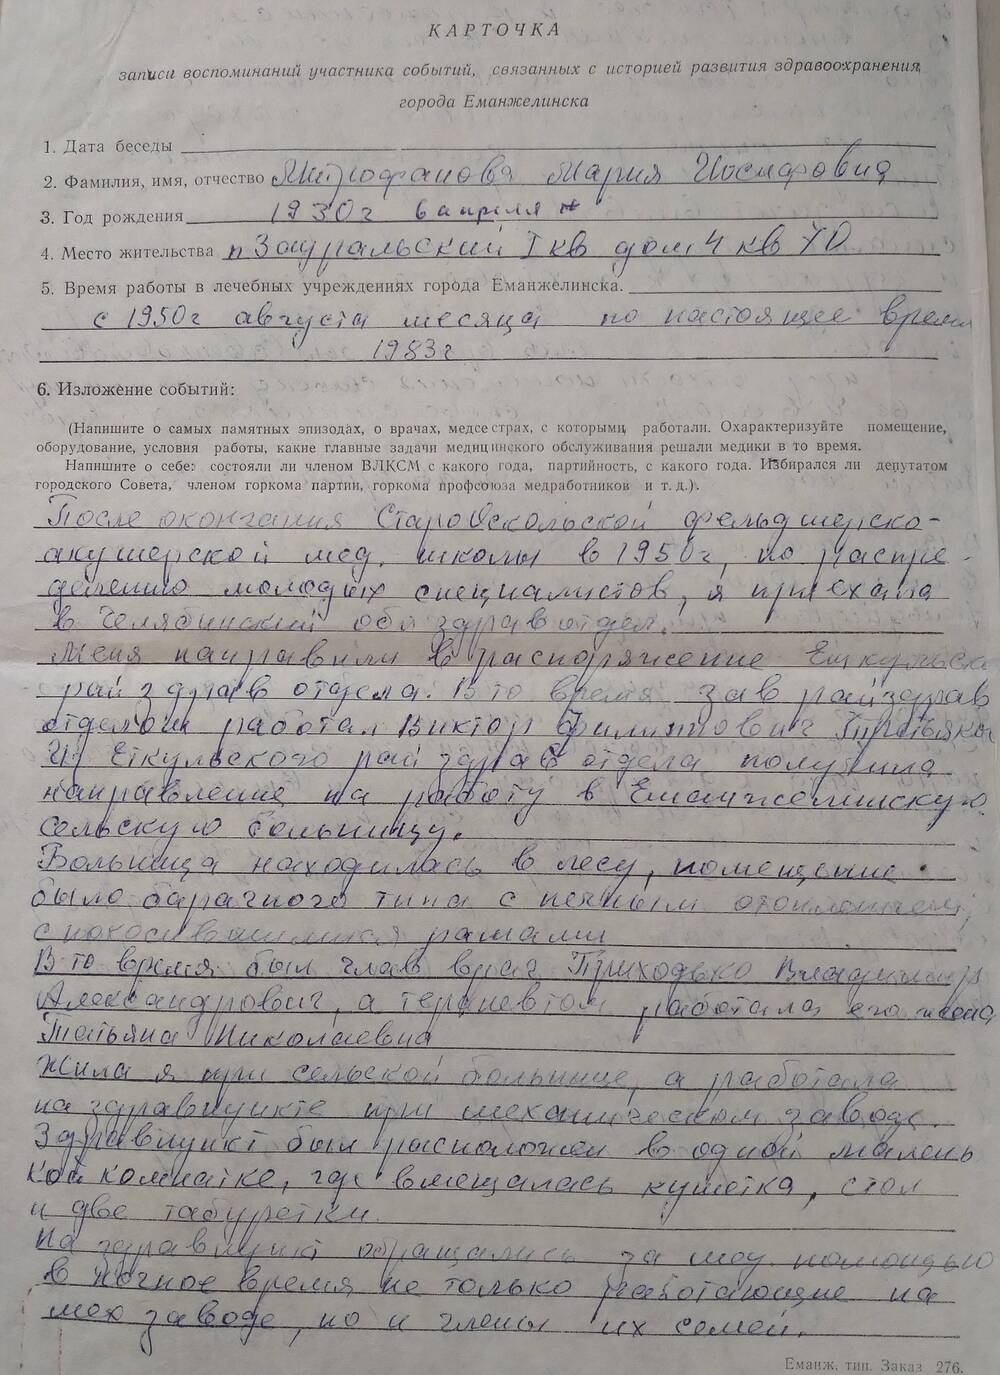 КАРТОЧКА
записи воспоминаний участника событий, связанных с историей развития здравоохранения,
города Еманжелинска
1. Дата беседы
2. Фамилия, имя, отчество Митрофанова Мария Иосифовна
3. Год рождения 1930г 6 апреля
4. Место жительства п Зауральский I кв дом 4 кв
5. Время работы в лечебных учреждениях города Еманжелинска.
с 1950г августа месяца по настоящее время
1983г
6. Изложение событий:
(Напишите о самых памятных эпизодах, о врачах, медсестрах, с которыми работали. Охарактеризуйте помещение,
оборудование, условия работы, какие главные задачи медицинского обслуживания решали медики в то время.
Напишите о себе: состояли ли членом ВЛКСМ с какого года, партийность, с какого года. Избирался ли депутатом
городского Совета, членом горкома партии, горкома профсоюза медработников и т. д.).
После окончания СтароОскольской фельдшерско-
акушерской мед. школы в 1950г, по распре-
делению молодых специалистов, я приехала
в Челябинский обл здрав отдел.
Меня направили в распоряжение Еткульск
рай здрав отдела. В то время зав райздрав
отделом работал Виктор Филиппович
Из Еткульского рай здрав отдела получила
направление на работу в Еманжелинскую
сельскую больницу.
Больница находилась в лесу, помещение
было барачного типа с печным отоплением,
с покосившимися рамами
В то время был глав врач Приходько Владимир
Александрович, а терапевтом работала его жена
Татьяна Николаевна
Жила я при сельской больнице, а работала
на здравпункте при механическом заводе.
Здравпункт был расположен в одной малень
кой комнатке, где вмещалась кушетка, стол
и две табуретки.
На здравпункт обращались за мед. помощью
в ночное время не только работающие на
мех заводе, но и члены их семей.
Еманж. тип. Заказ 276.